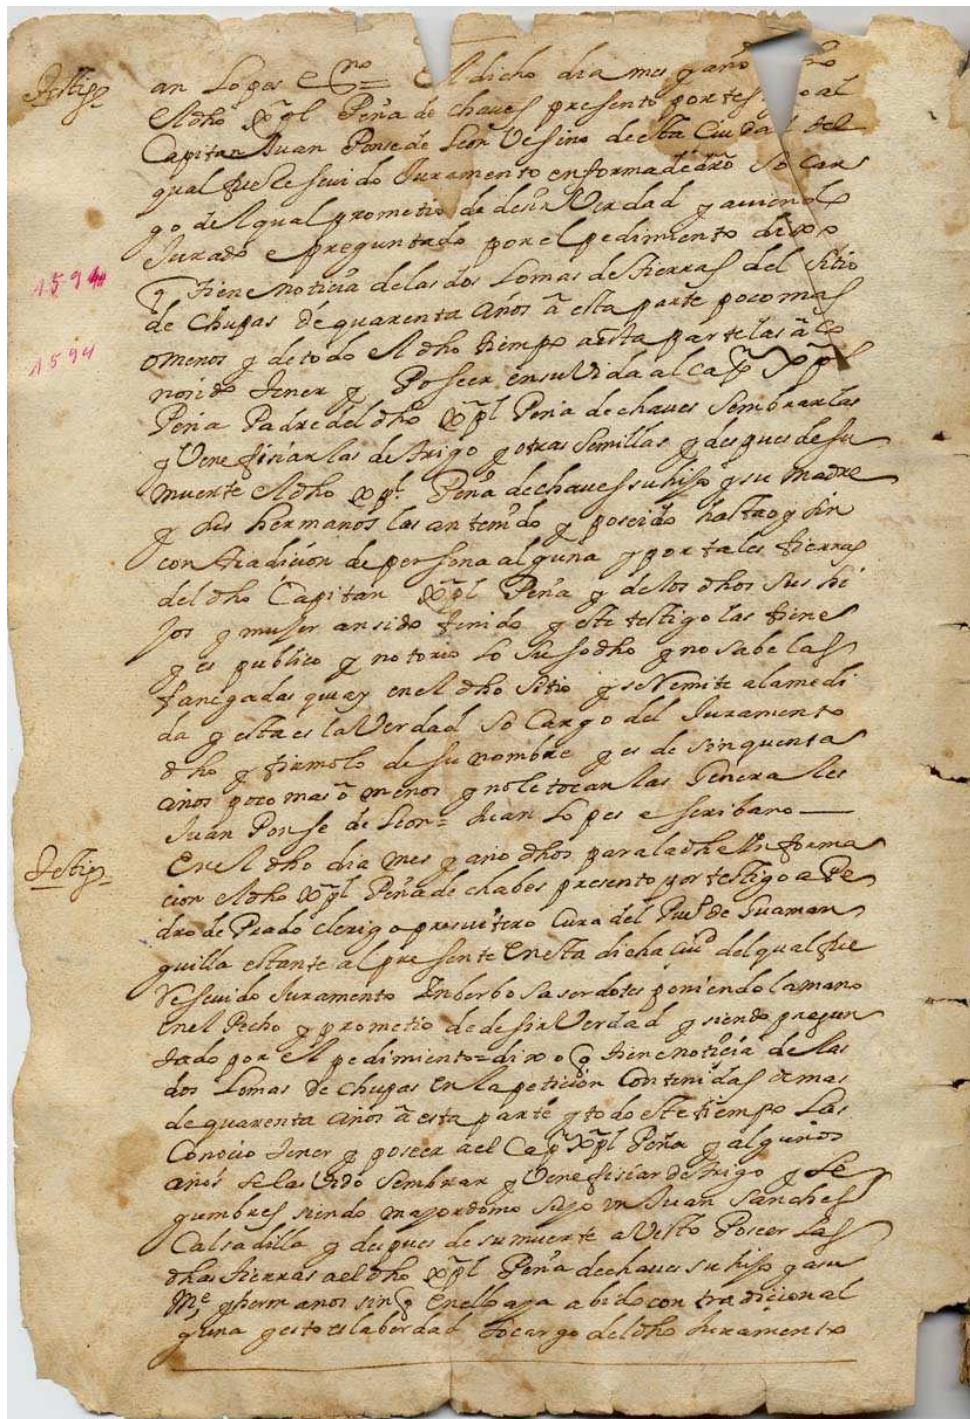 Testigo
an Lopes es.no = El dicho dia mes y año dho
el dho xpl Peña de chaves presento por testigo al
Capitan Juan Ponse de Leon Vesino de esta Ciudad del
qual fue Resevido Juramento en forma de dro so car
go del qual prometio de desir Verdad y aviendo
Jurado e preguntado por el pedimiento dixo
1594
q tiene noticia de las dos Lomas de tierras del sitio
de Chupas de quarenta años a esta parte poco mas
1594
o menos y de todo el dho tiempo a esta parte las a co
nosido tener y Posseer en su Vida al Capn xpl
Peña Padre del dho xpl Peña de chaves Sembrarlas
y Venefisiarlas de trigo y otras Semillas y despues de su
muerte el dho xpl Peña de chaves su hijo y su madre
y sus hermanos las an tenido y poseido hasta oy sin
contradicion de persona alguna y por tales tierras
del dho Capitan xpl Peña y de los dhos sus hi
jos y muger an sido tenido y este testigo las tiene
y es publico y notorio lo susodho y no sabe las
fanegadas que ay en el dho sitio y se Remite a la medi
da y esta es la Verdad so Cargo del Juramento
dho y firmolo de su nombre y es de sinquenta
años poco mas o menos y no le tocan las Generales
Juan Ponse de Leon = Juan Lopes escribano
Testigo
En el dho dia mes y año dhos para la dha Informa
cion el dho xpl Peña de chabes presento por testigo a Pe
dro de Prado clerigo presvitero Cura del Pueo de Guaman
guilla estante al presente en esta dicha Ciud del qual fue
Resevido Juramento Inberbo saserdotes poniendo la mano
en el Pecho y prometio de desir Verdad y siendo pregun
tado por el pedimiento = dixo q tiene noticia de las
dos Lomas de Chupas en la peticion Contenidas de mas
de quarenta años a esta parte y todo este tiempo las
Conocio tener y poseer a el Capn xpl Peña y algunos
años se las Vido Sembrar y Venefisiar de trigo y Le
gumbres siendo mayordomo suyo un Juan Sanches
Calsadilla y despues de su muerte a Visto Poseer las
dhas tierras a el dho xpl Peña de chaves su hijo y a su
Me y hermanos sin q en ello aya abido contradicion al
guna y esto es la berdad so cargo del dho Juramento